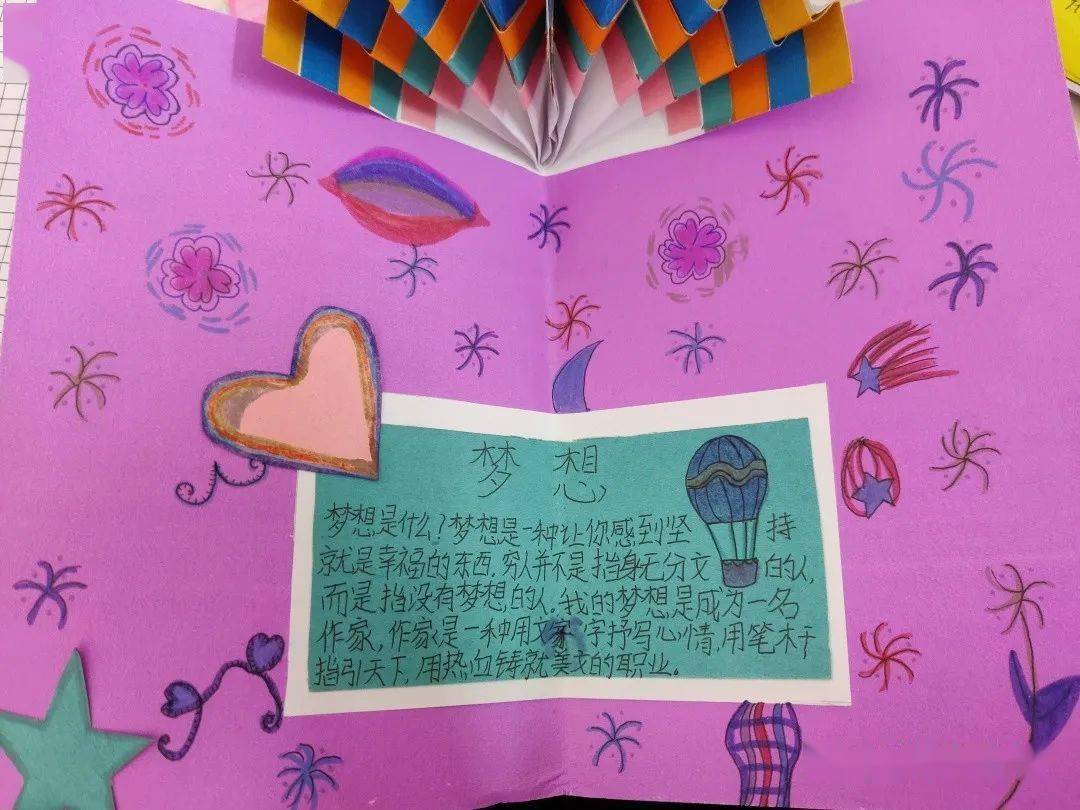 梦想
梦想是什么？梦想是一种让你感到坚持
就是幸福的东西，穷人并不是指身无分文的人，
而是指没有梦想的人。我的梦想是成为一名
作家，作家是一种用文字抒写心情，用笔杆
指引天下，用热血铸就美文的职业。